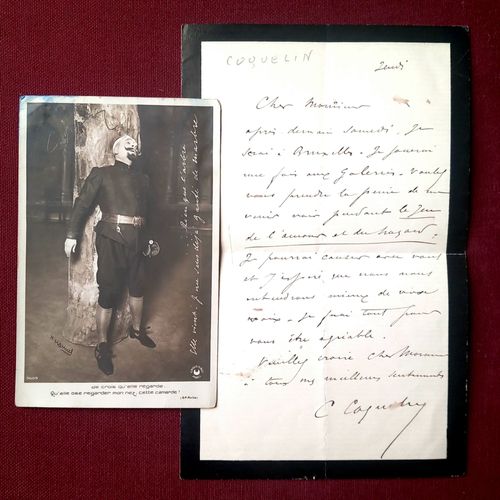 COQUELIN
Jeudi
Cher Monsieur
après demain samedi. Je
serai à Bruxelles. Je jouerai
une fois aux Galeries. Voulez
vous prendre la peine de me
venir voir pendant le Jeu
de l'amour et du hazard.
Je pourrai causer avec vous
et j'espère que nous nous
entendrons mieux de vive
voix. Je ferai tout pour
vous être agréable.
Veuillez croire Cher Monsieur
à tous mes meilleurs sentiments
C Coquelin
Elle vient, je me sens déjà
Rien que l'arbre
ganté de marbre
Je crois qu'elle regarde...
Qu'elle ose regarder mon nez, cette camarde!